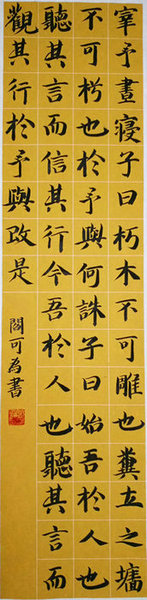 宰予晝寢子曰朽木不可雕也糞土之墻
不可杇也於予與何誅子曰始吾於人也
聽其言而信其行今吾於人也聽其言而
觀其行於予與改是 閻可為書